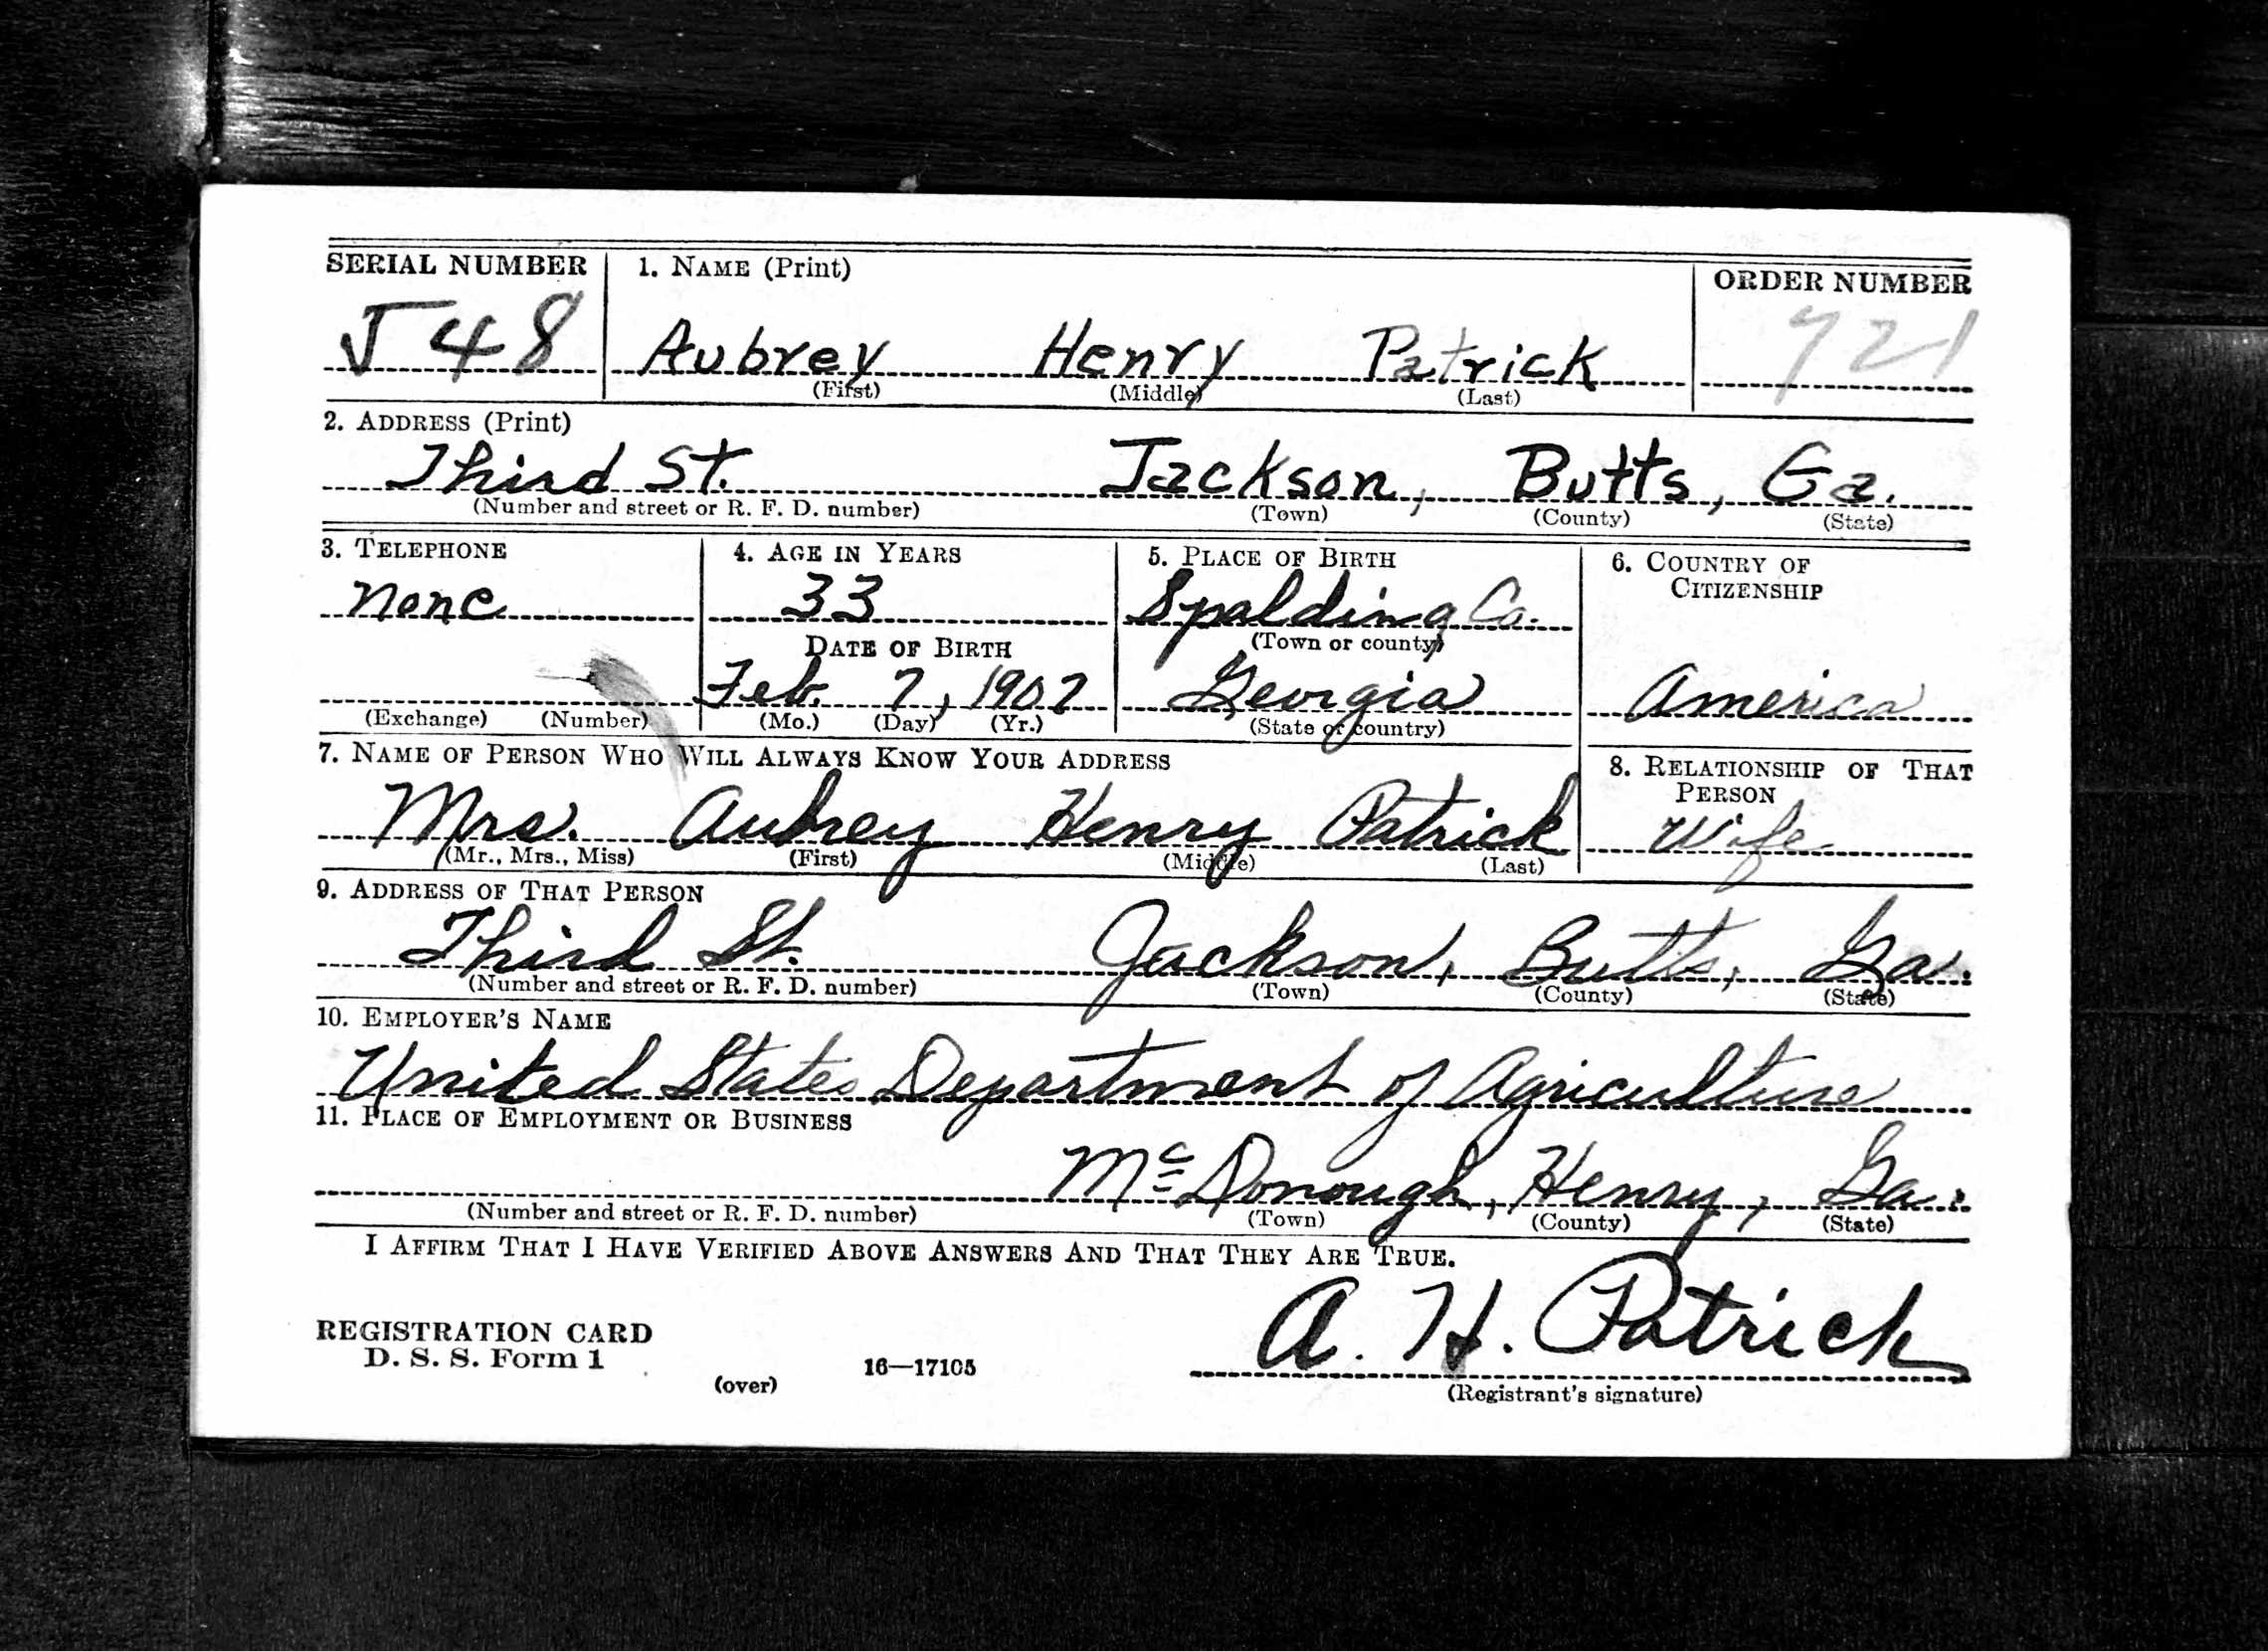 SERIAL NUMBER 1. NAME (Print) ORDER NUMBER
548 Aubrey Henry Patrick 721
(First) (Middle) (Last)
2. ADDRESS (Print)
Third St. Jackson, Butts, Ga.
(Number and street or R. F. D. number) (Town) (County) (State)
3. TELEPHONE 4. AGE IN YEARS 5. PLACE OF BIRTH 6. COUNTRY OF CITIZENSHIP
None 33 Spalding Co.
DATE OF BIRTH (Town or county)
Feb. 7, 1907 Georgia America
(Exchange) (Number) (Mo.) (Day) (Yr.) (State or country)
7. NAME OF PERSON WHO WILL ALWAYS KNOW YOUR ADDRESS 8. RELATIONSHIP OF THAT PERSON
Mrs. Aubrey Henry Patrick Wife
(Mr., Mrs., Miss) (First) (Middle) (Last)
9. ADDRESS OF THAT PERSON
Third St. Jackson, Butts, Ga.
(Number and street or R. F. D. number) (Town) (County) (State)
10. EMPLOYER'S NAME
United States Department of Agriculture
11. PLACE OF EMPLOYMENT OR BUSINESS
McDonough, Henry, Ga.
(Number and street or R. F. D. number) (Town) (County) (State)
I AFFIRM THAT I HAVE VERIFIED ABOVE ANSWERS AND THAT THEY ARE TRUE.
A. H. Patrick
REGISTRATION CARD
D. S. S. Form 1
(over) 16—17105 (Registrant's signature)